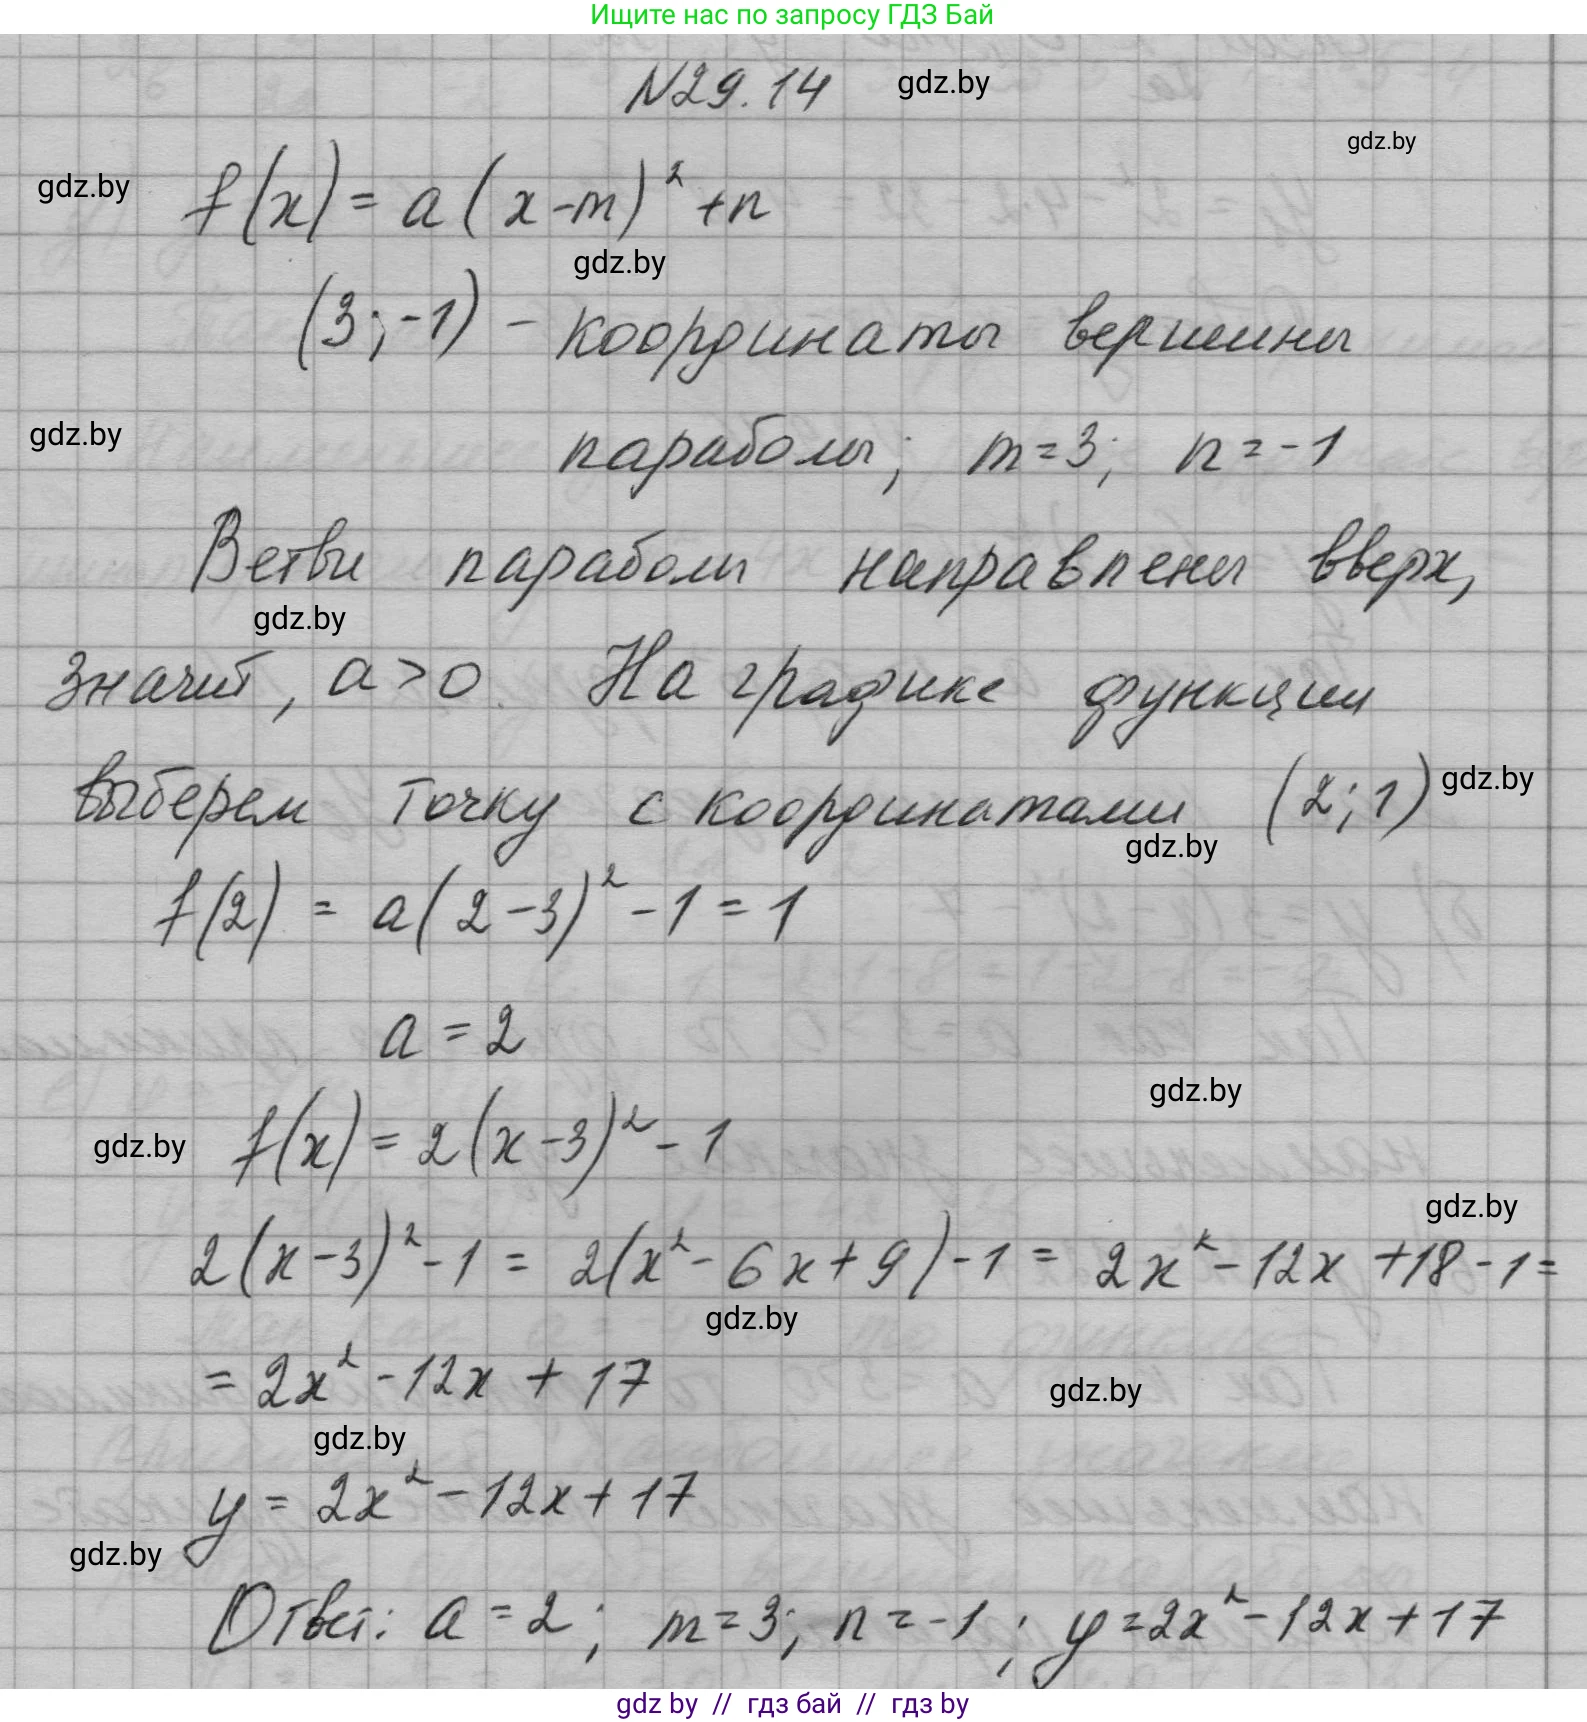 Ищите нас по запросу ГДЗ Бай
N29.14 gdz.by
gdz.by
gdz.by f(x) = a(x-m)² +n
gdz.by
(3; -1) - координаты вершины
gdz.by параболы; m=3; n=-1
Ветви параболы направлены вверх,
gdz.by
значит, a>0. На графике функции
выберем точку с координатами (2;1) gdz.by
gdz.by
f(2) = a(2-3)² -1 = 1
a = 2
gdz.by
gdz.by f(x) = 2(x-3)² - 1
gdz.by
2(x-3)² -1 = 2(x² - 6x + 9) -1 = 2x² -12x +18 -1 =
gdz.by
= 2x² -12x + 17 gdz.by
gdz.by
y = 2x² -12x + 17
gdz.by
Ответ: a = 2; m = 3; n = -1; y = 2x² -12x + 17
gdz by // гдз бай // гдз by